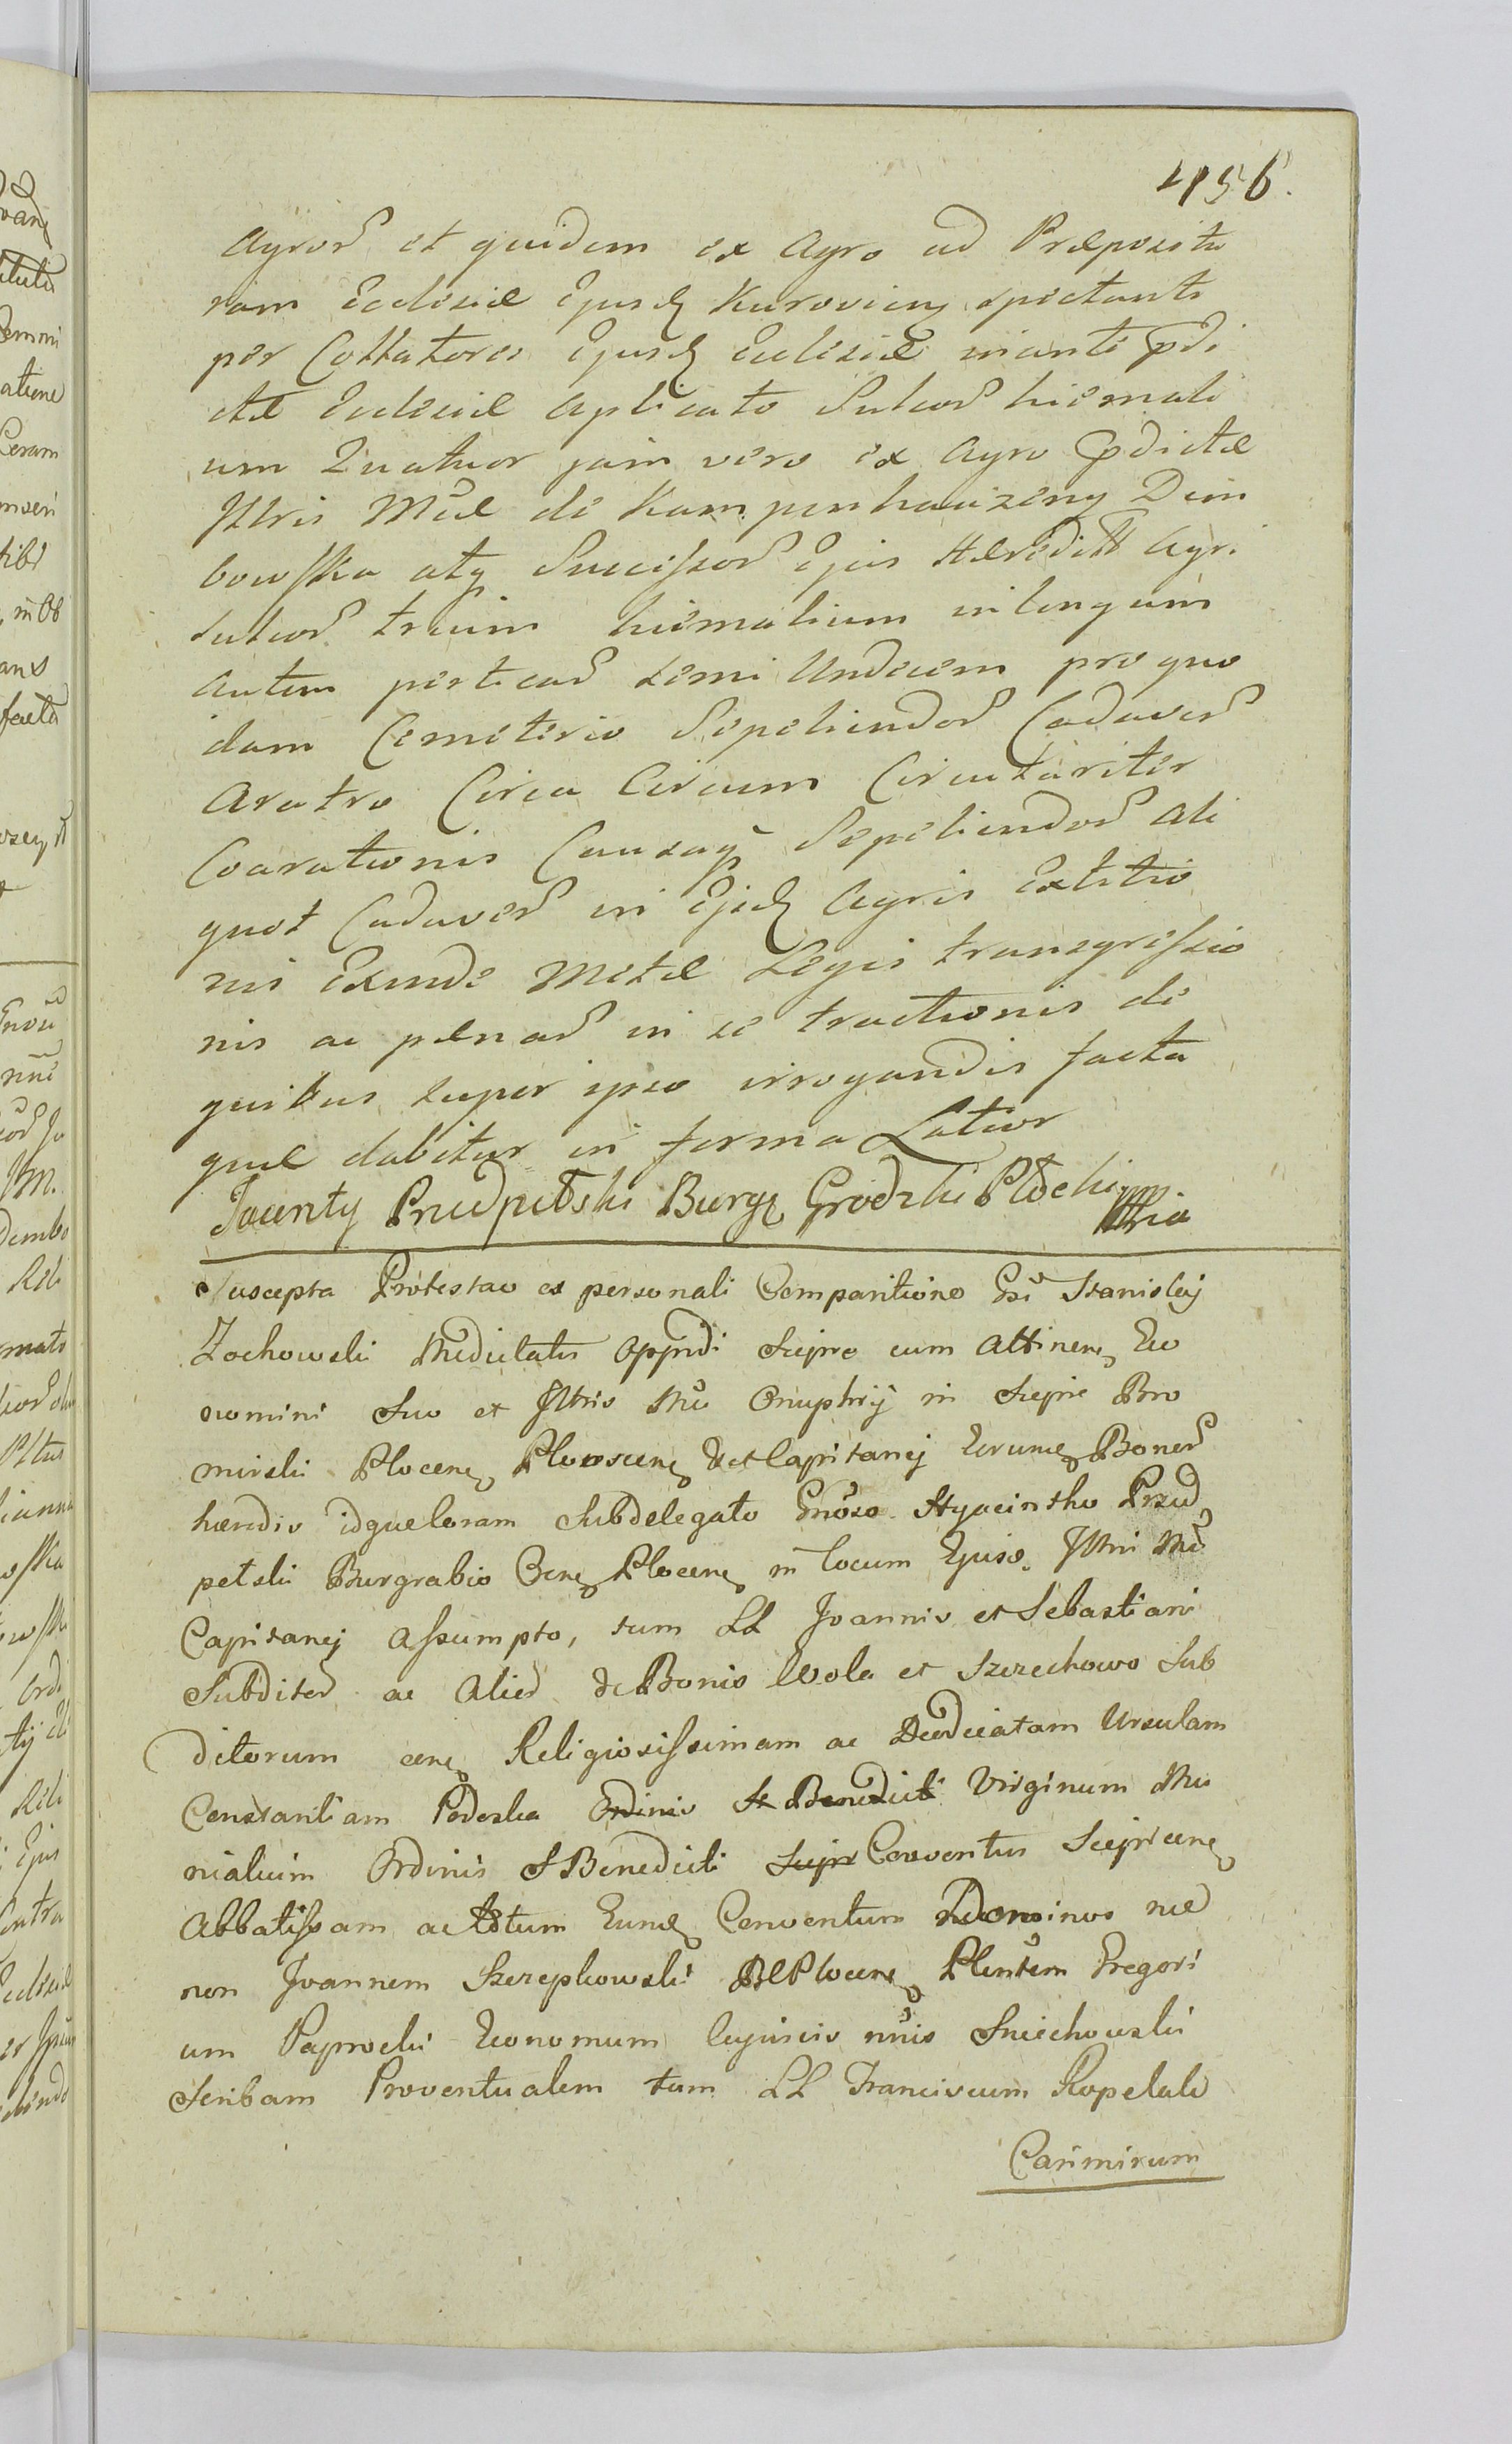 456.
Agror̃ et quidem ex Agro ad Præpositu
ram Ecclesiæ Ejusd Kuroviens spectanti
per Collatores Ejusd Ecclesiæ in ante prædi
ctæ Ecclesiæ Aplicato Sulcor̃ hiemali
um Quatuor jam vero ex Agro prædictæ
Illtris Mcæ de Kampenhauzeny Dem
bowska atq Successor̃ Ejus Hæreditt Agri
Sulcor̃ trium hiemalium in longum
autem perticar̃ semi Undecem pro quo
dam Cemeterio Sepeliendor̃ Cadaver̃
Aratro Circa Circum Circulariter
Coarationis Causaq Sepeliendor̃ Ali
quot Cadaver̃ in Ejsd Agris Extitio
nis Exinde Metæ Legis transgressio
nis ac pænar̃ in se tractionis de
quibus super ipso irrogandis facta
quæ dabitur in forma Latior
Jacenty Przedpełski Burg Grodzki Płocki mppria
Suscepta Protestao ex personali Comparitione Gsi Stanislaj
Zochowski Medietatis Oppidi Sierpc cum Attinen Eo
nomini Suo et Illtris Mci Onuphrij in Sierpc Bro
mirski Plocen Plonscen &ct Capitanej Eorumq Bonor̃
hæredis idque coram Subdelegato Gnoso Hyacintho Przed
petski Burgrabio Cten Plocen in locum Ejusd Illtri Mci
Capitanej Assumpto, tum LL Joannis et Sebastiani
Subditor̃ ac Alior̃ de Bonis Wola et Szczechowo Sub
ditorum con Religiosissimam ac Deodicatam Ursulam
Constantiam Podoska Ordinis St Benedicti Virginum Mo
nialium Ordinis S Benedicti Sierpc Conventus Sieprcen
Abbatissam ac totum Eund Conventum Dominos nec
non Joannem Szczepkowski BCPlocen Plentem Gregori
um Paprocki Economum cujuscis nnis Sniechowski
Scribam Proventualem tum LL Franciscum Kopelski
Casimirum